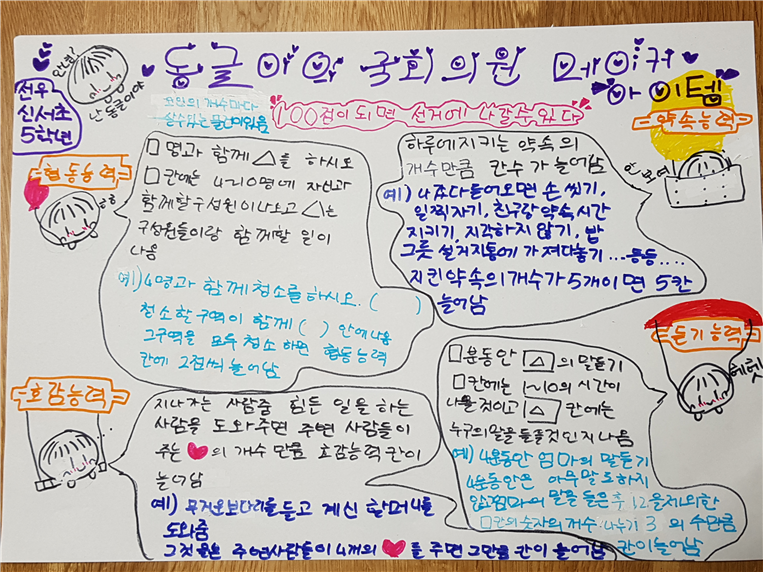 안녕?
난 동글이야
동글이와 국회의원 메이커
아이템
선우
신서초
5학년
살수있는 물건이있음
100점이 되면 선거에 나갈수 있다
협동능력
□ 명과 함께 △를 하시오
□ 칸에는 4~10명에 자신과
함께할 구성원이 나오고 △는
구성원들이랑 함께할 일이
나옴
예) 4명과 함께 청소를 하시오. ( )
청소한 구역이 함께 ( ) 안에 나옴
그구역을 모두 청소 하면 협동능력
칸에 2점씩 늘어남
약속능력
하루에 지키는 약속 의
개수만큼 칸수가 늘어남
예) 나갔다 들어오면 손 씻기,
일찍자기, 친구랑 약속 시간
지키기, 지각하지 않기, 밥
그릇 설거지통에 가져다놓기 ...등등....
지킨 약속의 개수가 5개이면 5칸
늘어남
호감능력
지나가는 사람중 힘든 일을 하는
사람을 도와주면 주변 사람들이
주는 ♥의 개수 만큼 호감능력 칸이
늘어남
예) 무거운보따리를 듣고 계신 할머니를
도와줌
그것을 본 주변사람들이 4개의 ♥를 주면 그만큼 칸이 늘어남
듣기능력
헤헷
□분동안 △의 말듣기
□칸에는 1~10의 시간이
나올 것이고 △ 칸에는
누구의 말을 들을것인지 나옴
예) 4분동안 엄마의 말듣기
4분동안은 아무말도 하지
않고 엄마의 말을 들은후 12을 제외한
□칸의 숫자의 개수 나누기 3 의 수만큼
칸이 늘어남